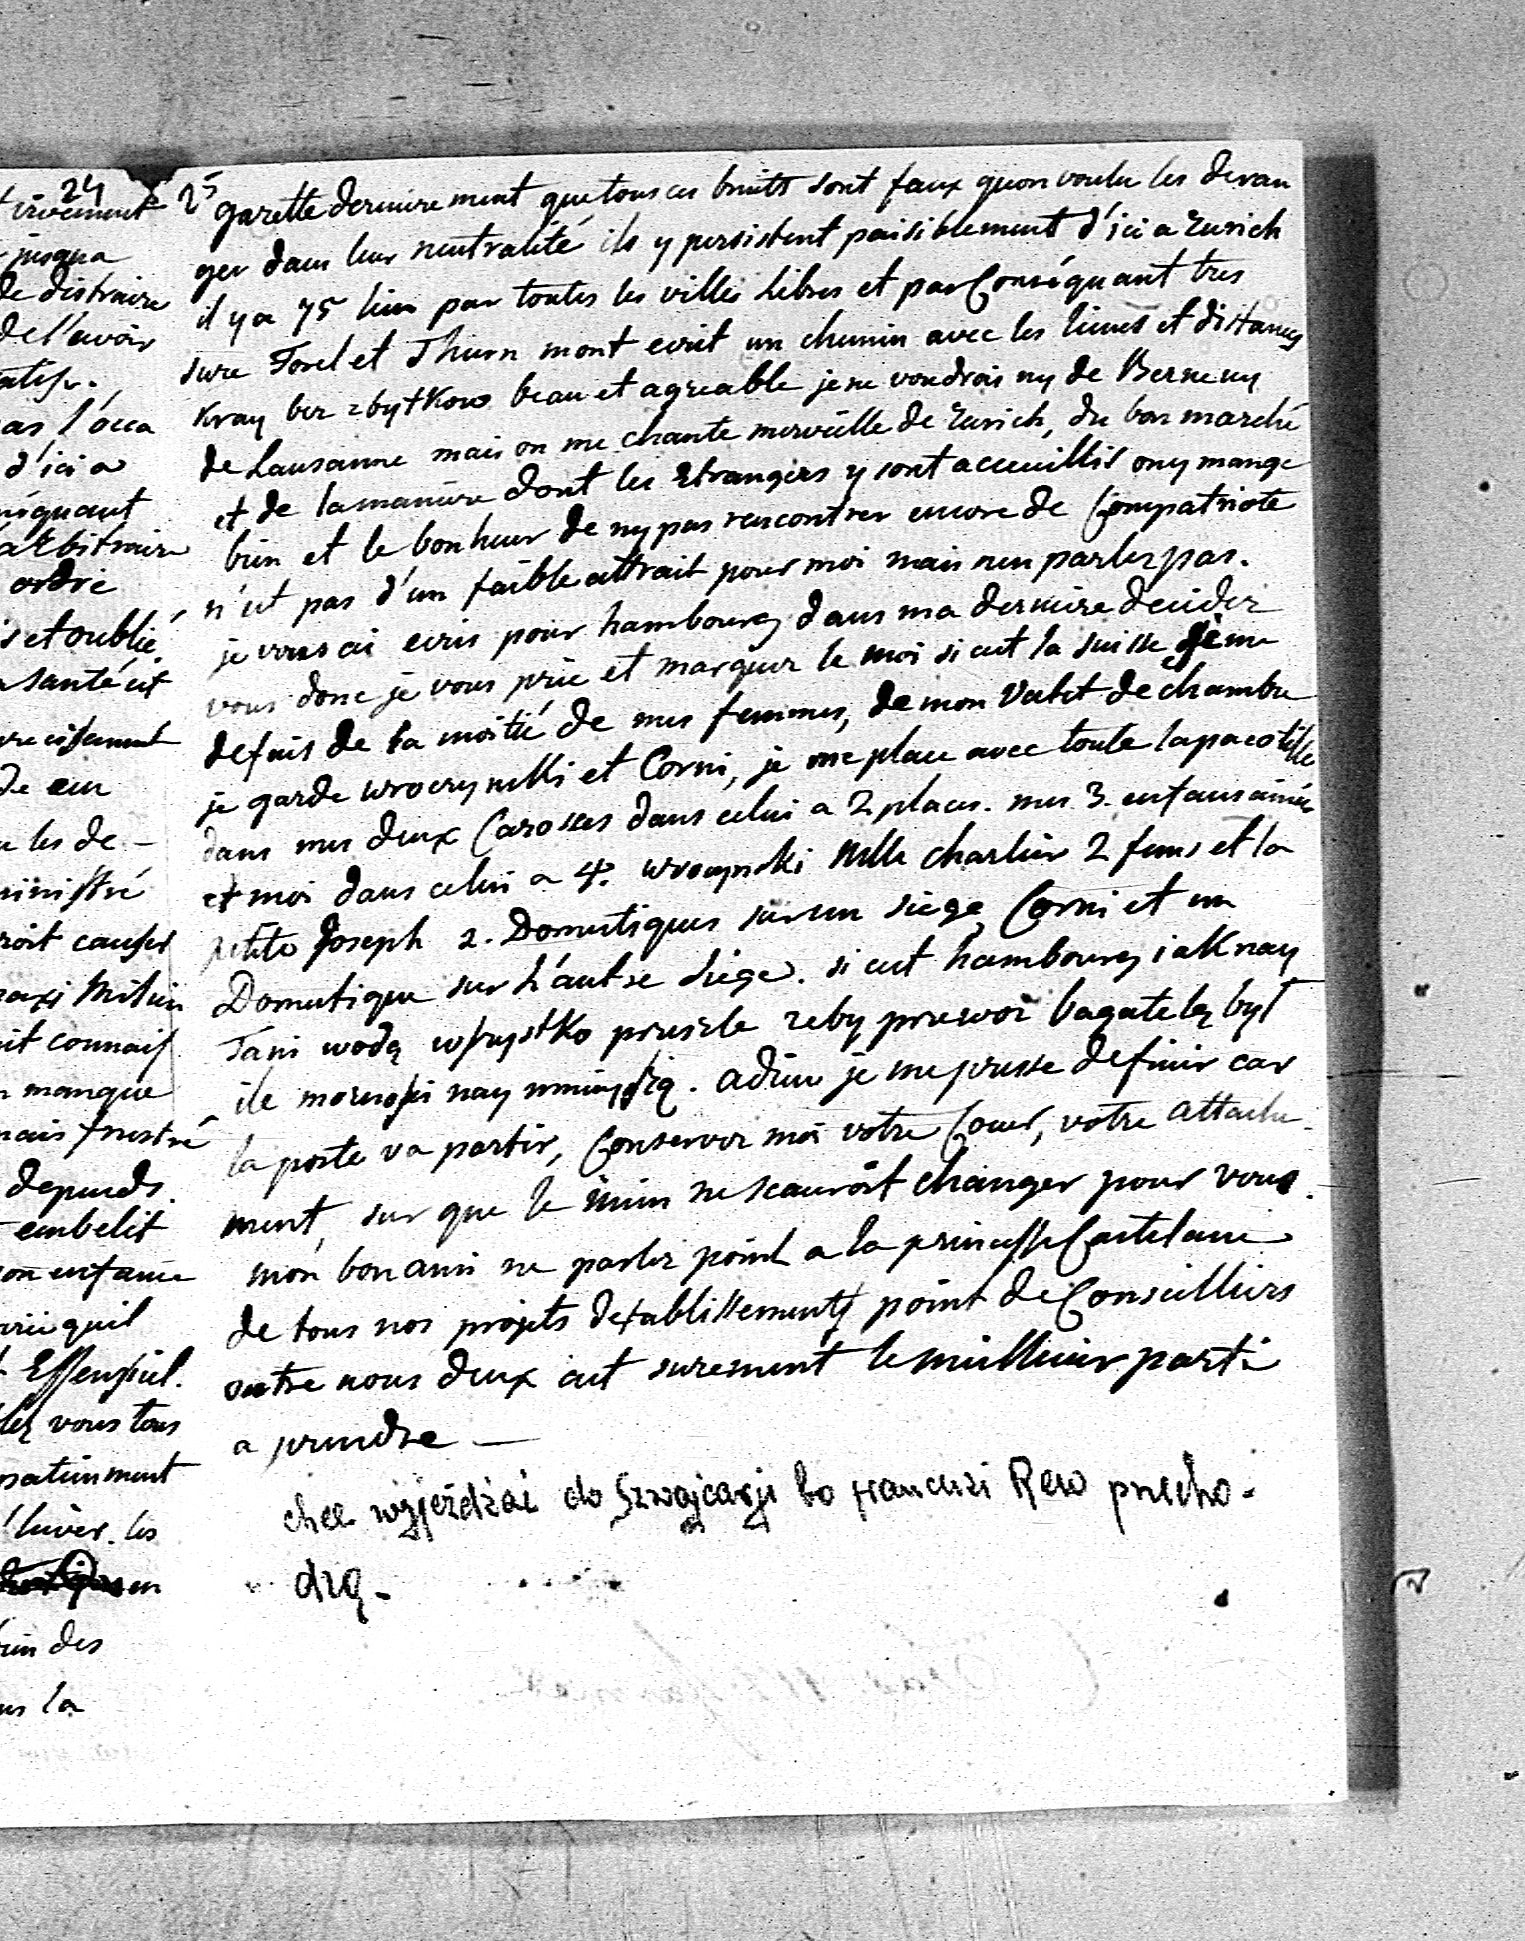 24
virement
jusqua
de distraire
de l'avoir
as l'occa
d'ici a
arbitraire
ordre
s et oublié
santé est
de eun
les de -
ministré
roit causer
it connais
manque
mais frustré
depends.
embelit
son enfance
quil
Essensiel.
vous tous
l'hiver. les
en
des
la
25 gazette dernierement que tous ces bruits sont faux quon voulu les deran
ger dans leur neutralité ils y persistent paisiblement d'ici a Zurich
il y a 75 lieu par toutes les villes Libres et par Conséquant tres
sure Forel et Thurn mont ecrit un chemin avec les lieues et distances
Kray bez zbytkow beau et agreable je ne voudrois ny de Berne ny
de Lausanne mais on me chante merveille de Zurich, du bon marché
et de la maniere dont les Etrangers y sont accueillis on y mange
bien et le bonheur de ny pas rencontrer encore de Compatriote
n'est pas d'un faible attrait pour moi mais nen parlez pas.
je vous ai ecris pour hambourg dans ma derniere decider
vous donc je vous prie et marquer le moi si cest la suisse je me
defais de la moitié de mes femmes, de mon Valet de chambre
je garde wroczynski et Corni, je me place avec toute la pacotille
dans mes deux Carosses dans celui a 2 places. mes 3. enfans ainées
et moi dans celui a 4. wroczynski Mlle charlier 2 fems et la
petite Joseph 2. Domestiques sur un siege Corni et un
Domestique sur l'autre siege. si cest hambourg iak nay
Tani wodą wszystko przeszle zeby przewoz bagatelą był
ile moznosci nay mnieyszą. adieu je me presse de finir car
la poste va partir, Conservez moi votre Coeur, votre attache-
ment, sur que le mien ne scauroit changer pour vous.
mon bon ami ne parlez point a la princesse Castelane
de tous nos projets detablissements point de Conseilliers
outre nous deux cest surement le meillieur parti
a prendre —
chce wyjeżdżać do Szwajcarji bo francuzi Ren przecho-
dzą.